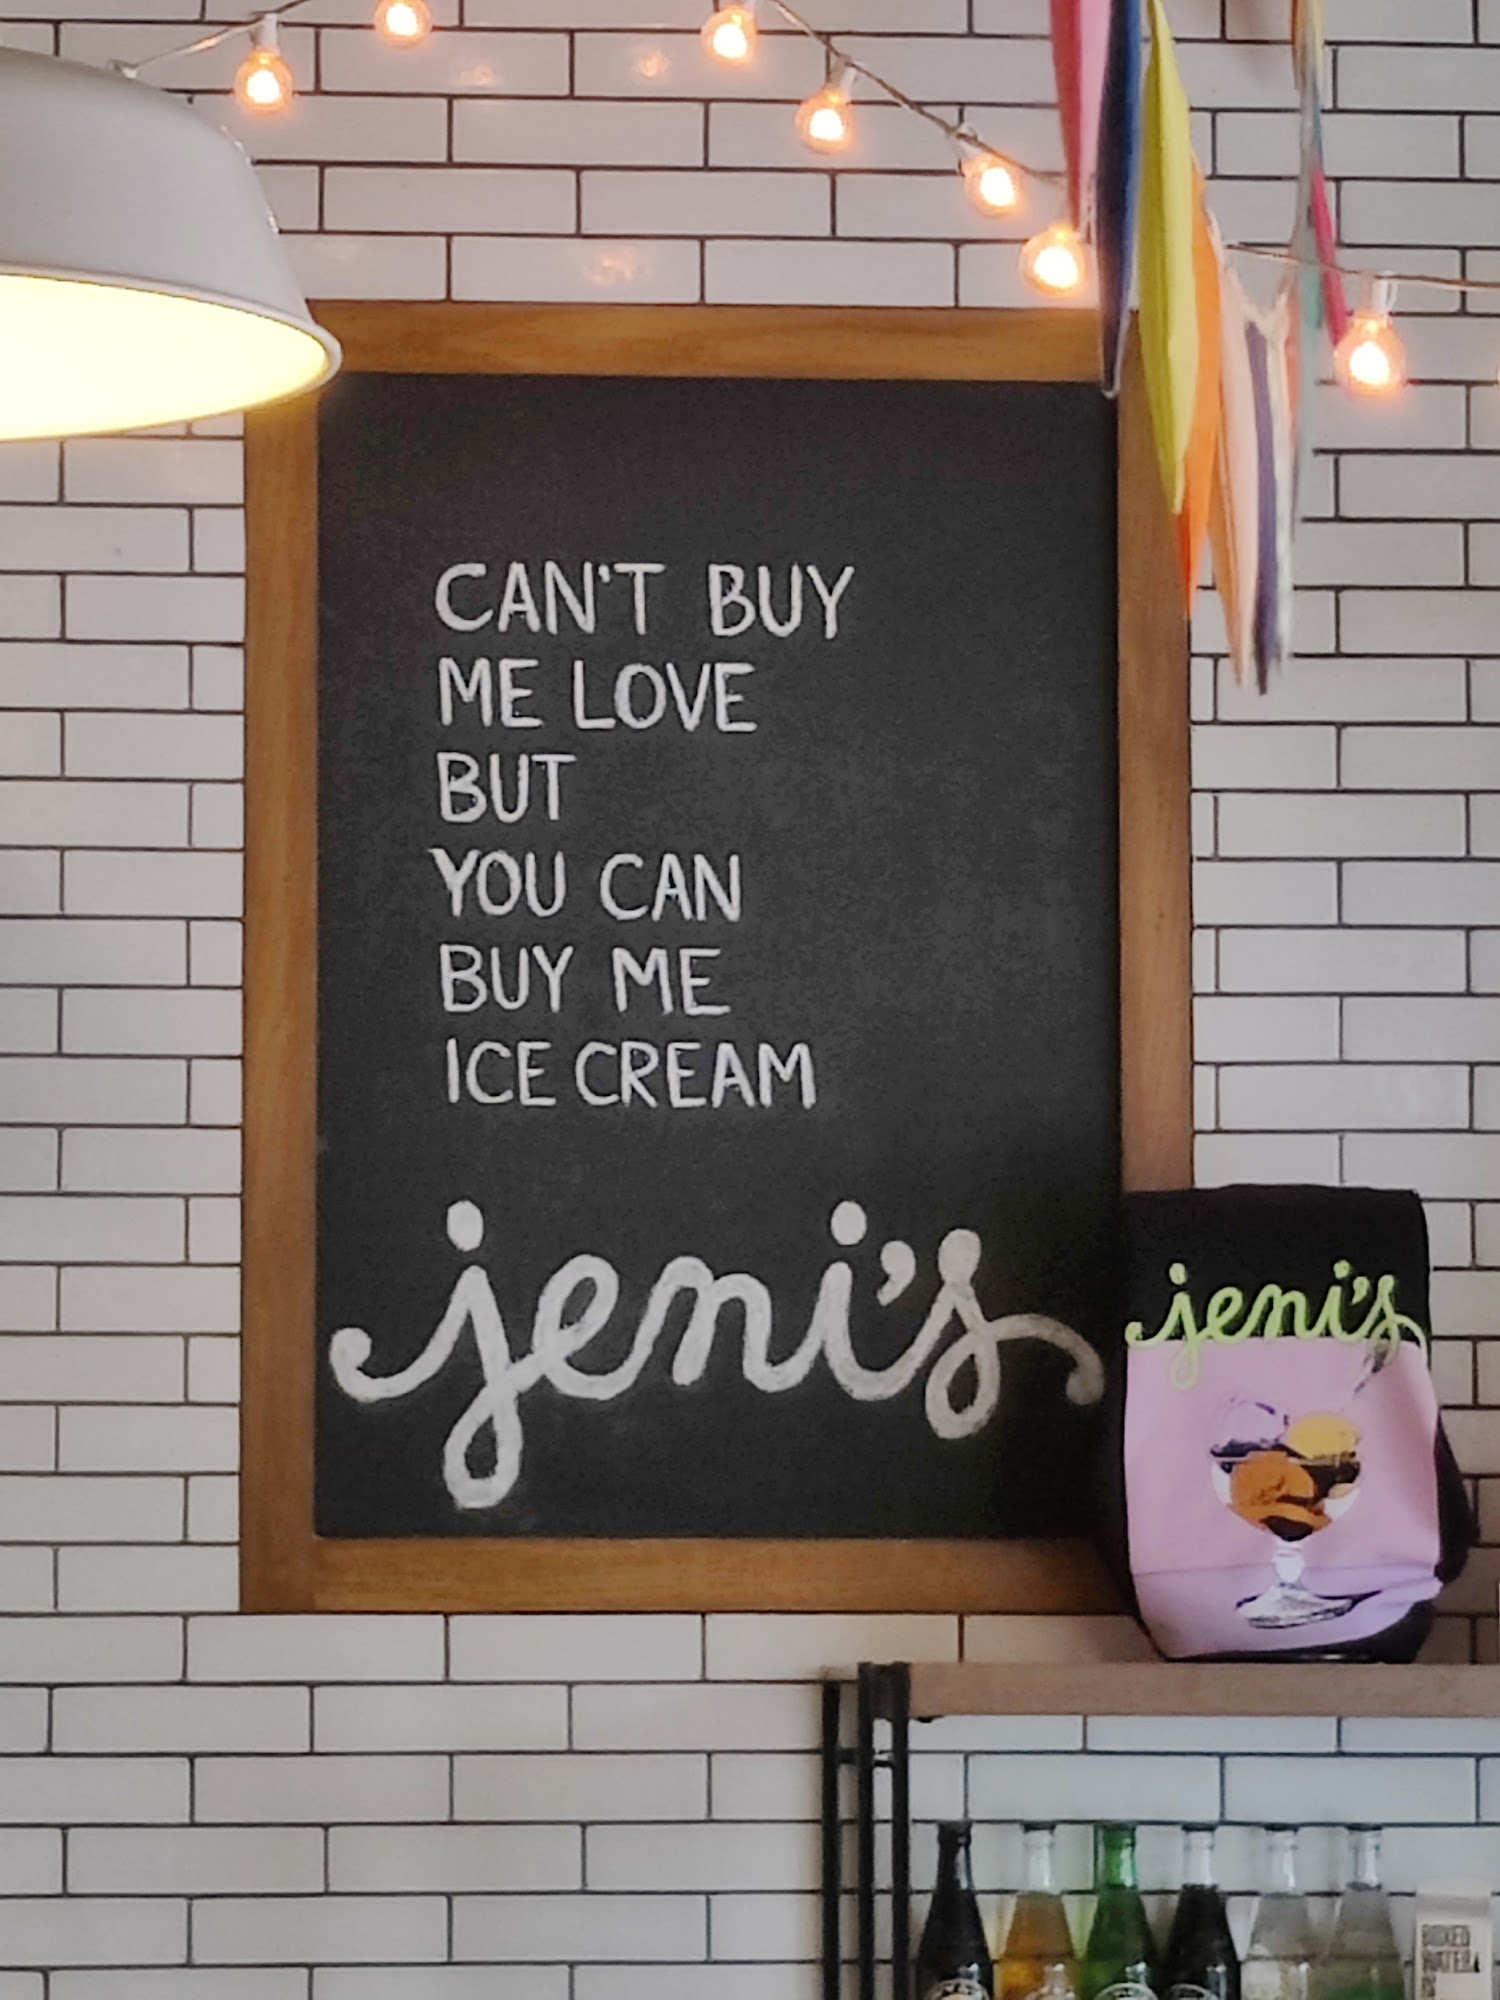 CAN'T BUY
ME LOVE
BUT
YOU CAN
BUY ME
ICE CREAM
jeni's
jeni's
BOXED
WATER
IS